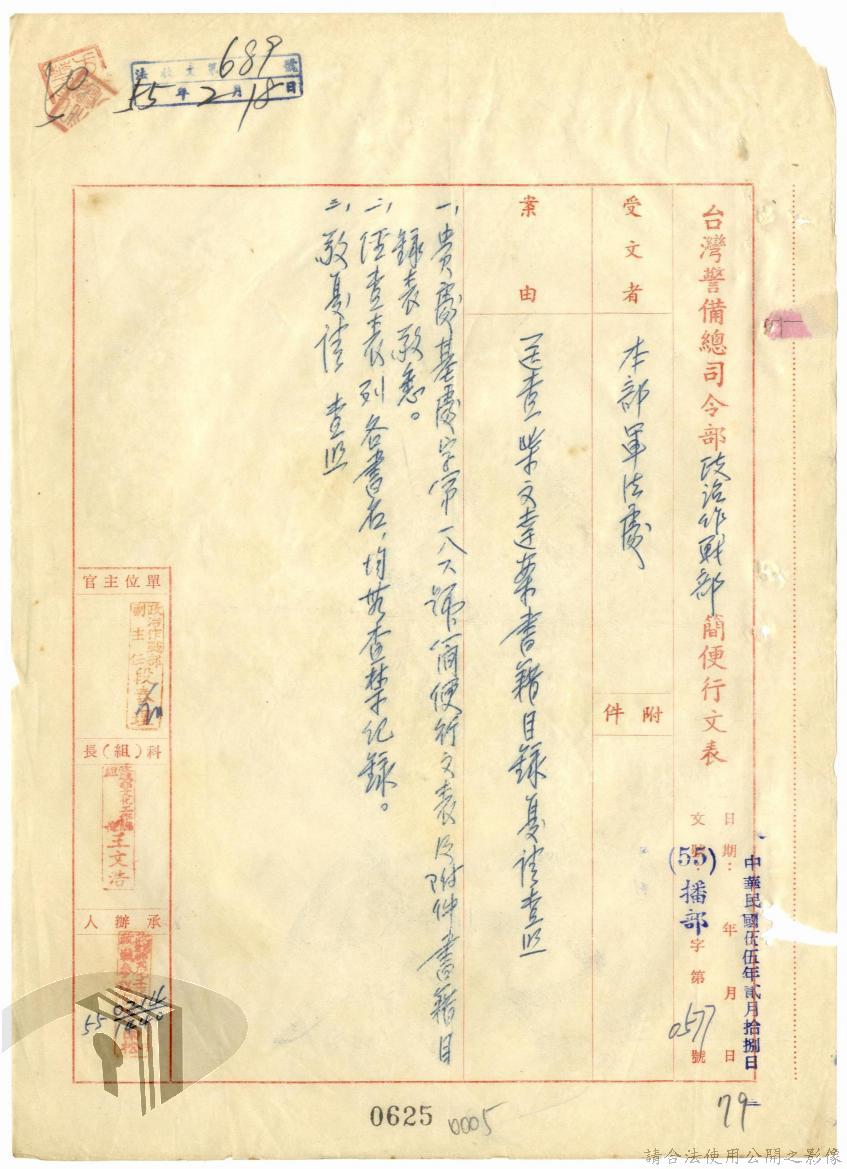 法收文第689號
55年2月18日
台灣警備總司令部政治作戰部簡便行文表
日期: 年 月 日
中華民國伍伍年貳月拾捌日
文號:(55)播部字第0577號
受文者
本部軍法處
附件
案由
送查柴文達案書籍目錄復請查照
一、貴處基處字第一八六號簡便行文表及附件書籍目
錄表敬悉。
二、經查表列各書名,均無查禁紀錄。
三、敬復請 查照
單位主官
政治作戰部
副主任段
科(組)長
王文浩
承辦人
55 0214
1440
79
0625
0005
請合法使用公開之影像